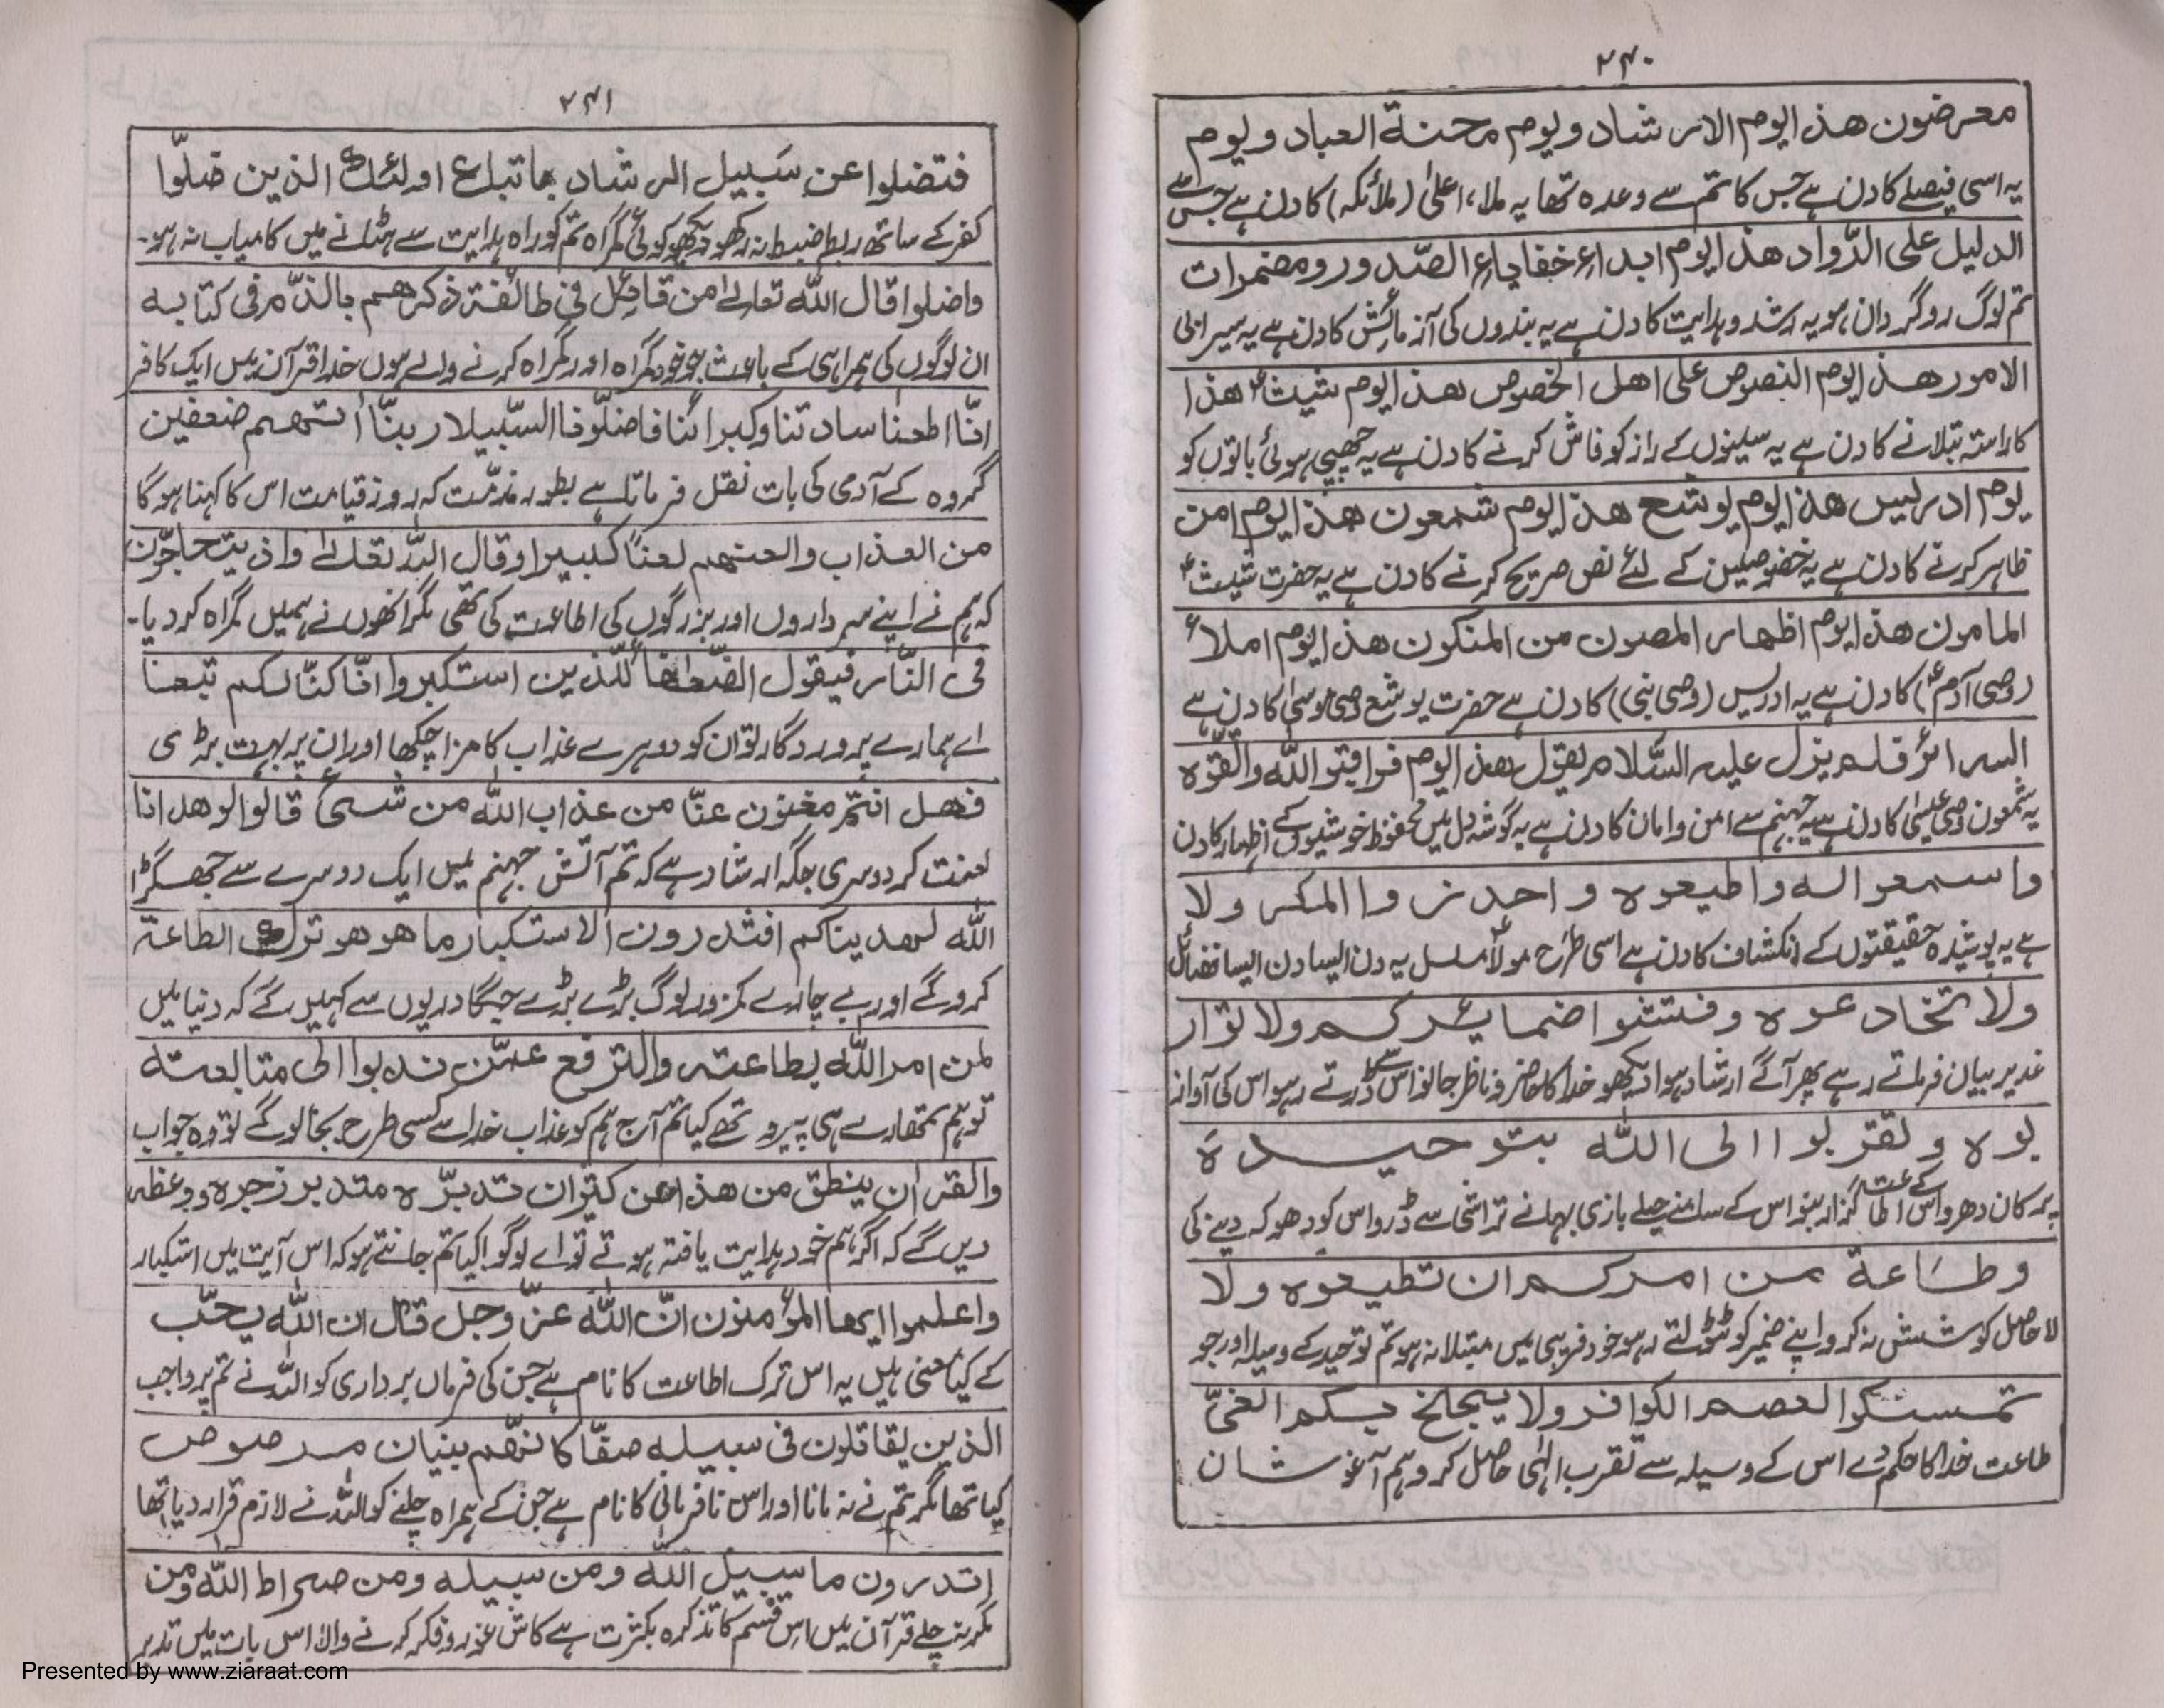 ۲۴۰
معرضون هذا ایوم الارشاد ویوم محنة العباد ویوم
یہ اسی فیصلے کا دن ہے جس کا تم سے وعدہ تھا یہ ملاء اعلیٰ (ملائکہ) کا دن ہے جس سے
الدلیل علی الذّواد هذا ایوم ابداء خفایاء الصّدور ومضمرات
تم لوگ روگرداں ہو یہ رشد وہدایت کا دن ہے یہ بندوں کی آزمائش کا دن ہے یہ سیرابی
الامور هذا ایوم النصوص علی اهل الخصوص هذا ایوم شیث؏ هذا
کا راستہ بتلانے کا دن ہے یہ سینوں کے راز کو فاش کرنے کا دن ہے یہ چھپی ہوئی باتوں کو
یوم ادریس هذا ایوم یوشع هذا ایوم شمعون هذا ایوم امن
ظاہر کرنے کا دن ہے یہ مخصوصین کے لئے نص صریح کرنے کا دن ہے یہ حضرت شیث؏
المامون هذا ایوم اظهار المصون من المنکون هذا ایوم املاء
(وصی آدم؏) کا دن ہے یہ ادریس (وصی نبی) کا دن ہے حضرت یوشع وصی موسیٰ کا دن ہے
السرائر فلم یزل علیه السّلام یقول هذا ایوم فراقبوا اللّٰه والقوه
یہ شمعون وصی عیسیٰ کا دن ہے یہ جہنم سے امن وامان کا دن ہے یہ گوشہ دل میں محفوظ خوشیوں کے اظہار کا دن
واسمعوا له واطیعوه واحذروا المکر ولا
ہے یہ پوشیدہ حقیقتوں کے انکشاف کا دن ہے اسی طرح مولا؏ مسلسل یہ دن ایسا دن ایسا فضائل
ولا تخادعوه وفتشوا ضمایرکم ولا توار
غدیر بیان فرماتے رہے پھر آگے ارشاد ہوا دیکھو خدا کا حاضر و ناظر جانو اس سے ڈرتے رہو اس کی آواز
بوه وتقربوا الی اللّٰه بتوحیدہٖ
پر کان دھرو اس کے اطاعت گزار بنو اس کے سامنے حیلے بازی بہانے تراشی سے ڈرو اس کو دھوکہ دینے کی
وطاعة من امرکم ان تطیعوه ولا
لا حاصل کوشش نہ کرو اپنے ضمیر کو ٹٹولتے رہو خود فریبی میں مبتلا نہ ہو تم توحید کے وسیلہ اور جو
تمسکوا بعصم الکوافر ولا یجلخ بکم الغیّ
طاعت خدا کا حکم دے اس کے وسیلہ سے تقرب الٰہی حاصل کرو ہم آغوشان
۲۴۱
فتضلوا عن سبیل الرشاد باتباع اولئك الذین ضلّوا
کفر کے ساتھ ربط ضبط نہ رکھو دیکھو کوئی گمراہ تم کو راہ ہدایت سے ہٹانے میں کامیاب نہ ہو۔
واضلوا قال اللّٰه تعالےٰ من قائل فی طائفة ذکرهم بالذّم فی کتابه
ان لوگوں کی ہمراہی کے باعث جو خود گمراہ اور گمراہ کرنے والے ہوں خدا قرآن میں ایک کافر
انّا اطعنا سادتنا وکبرائنا فاضلّونا السّبیلا ربنّا اٰتهم ضعفین
گروہ کے آدمی کی بات نقل فرماتا ہے بطور مذمّت کہ روز قیامت اس کا کہنا ہوگا
من العذاب والعنهم لعناً کبیرا وقال اللّٰه تعالےٰ واذ یتحاجّون
کہ ہم نے اپنے سرداروں اور بزرگوں کی اطاعت کی تھی مگر انھوں نے ہمیں گمراہ کردیا۔
فی النّار فیقول الضّعفاء للّذین استکبروا انّا کنّا لکم تبعنا
اے ہمارے پروردگار تو ان کو دوہرے عذاب کا مزا چکھا اور ان پر بہت بڑی
فهل انتم مغنون عنّا من عذاب اللّٰه من شیء قالوا لو هدانا
لعنت کر دوسری جگہ ارشاد ہے کہ تم آتش جہنم میں ایک دوسرے سے جھگڑا
اللّٰه لهدیناکم افتدرون الاستکبار ما هو هو ترك الطاعة
کروگے اور بے چارے کمزور لوگ بڑے بڑے جگادریوں سے کہیں گے کہ دنیا میں
لمن امر اللّٰه بطاعته والترفع عمّن ندبوا الی متابعته
تو ہم تمھارے ہی پیرو تھے کیا تم آج ہم کو عذاب خدا سے کسی طرح بچالوگے تو وہ جواب
والقران ینطق من هذا عن کثیران تدبرّه متدبر زجره ووعظه
دیں گے کہ اگر ہم خود ہدایت یافتہ ہوتے تو اے لوگو! کیا تم جانتے ہو کہ اس آیت میں استکبار
واعلموا ایها المؤمنون انّ اللّٰه عزّ وجل قال ان اللّٰه یحبّ
کے کیا معنی ہیں یہ اس ترک اطاعت کا نام ہے جن کی فرماں برداری کو اللہ نے تم پر واجب
الذین یقاتلون فی سبیله صفّا کانهم بنیان مرصوص
کیا تھا مگر تم نے نہ مانا اور اس نافرمانی کا نام ہے جن کے ہمراہ چلنے کو اللہ نے لازم قرار دیا تھا
اتدرون ما سبیل اللّٰه ومن سبیله ومن صراط اللّٰه ومن
مگر نہ چلے قرآن میں اس قسم کا تذکرہ بکثرت ہے کاش غور و فکر کرنے والا اس بات میں تدبر
Presented by www.ziaraat.com